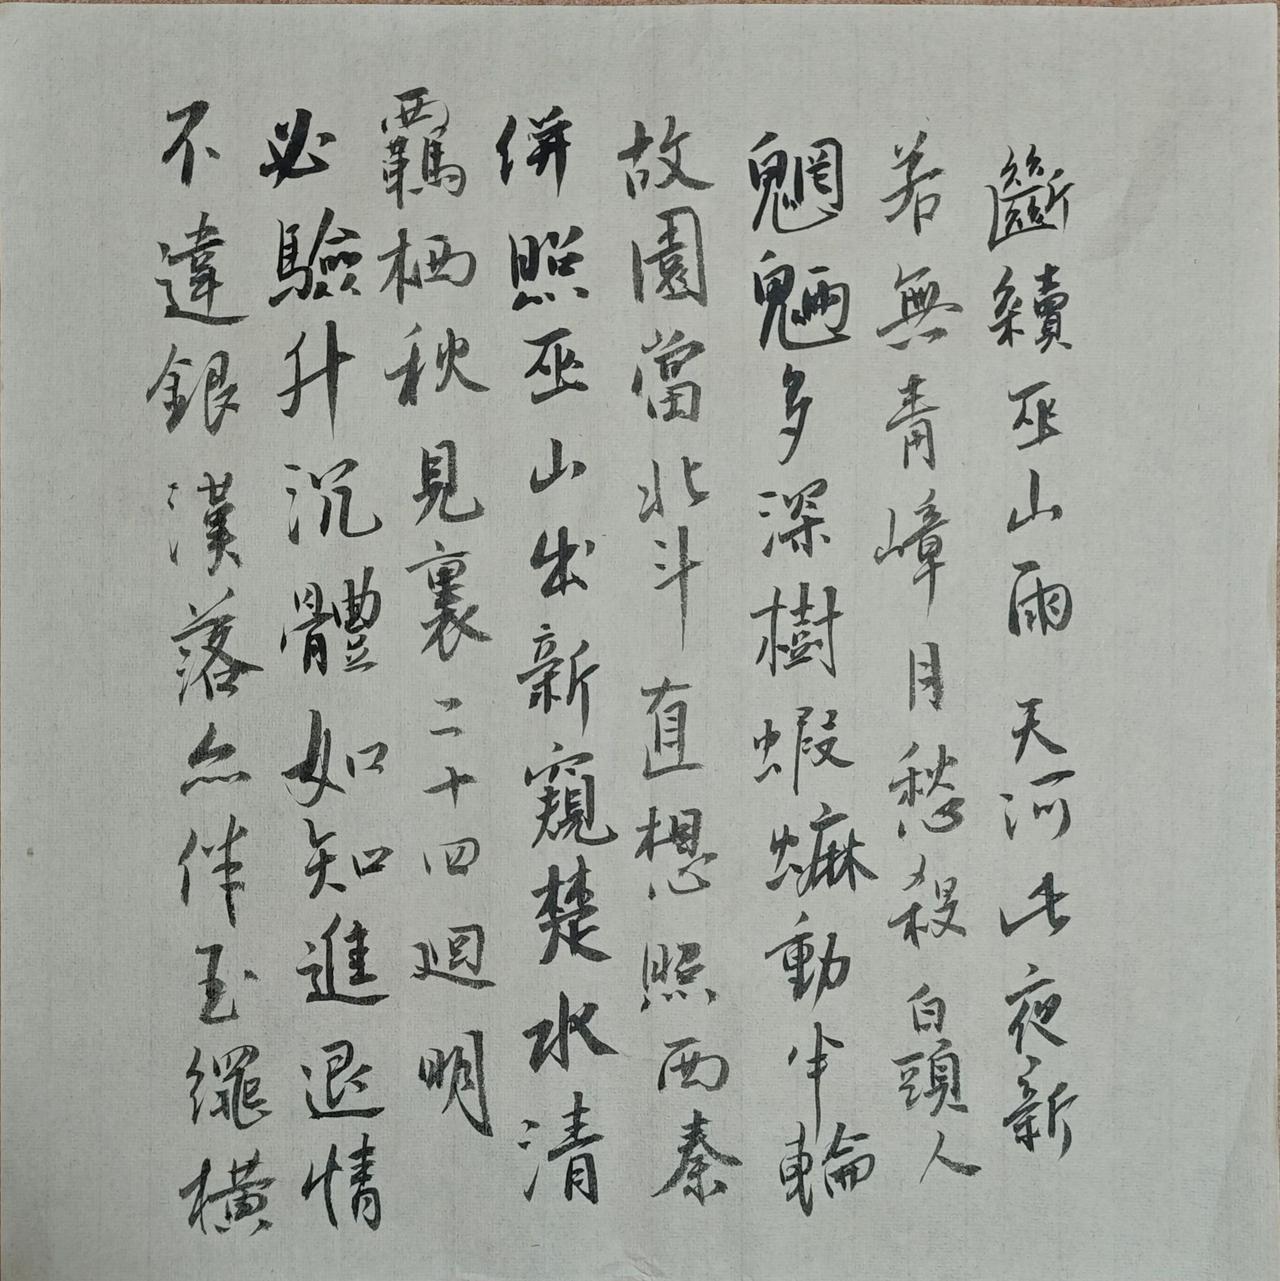 斷續巫山雨天河此夜新
若無青嶂月愁殺白頭人
魍魎多深樹蝦蟆動半輪
故園當北斗直想照西秦
併照巫山出新窺楚水清
羈栖愁見裏二十四迴明
必驗升沉體如知進退情
不違銀漢落亦伴玉繩橫